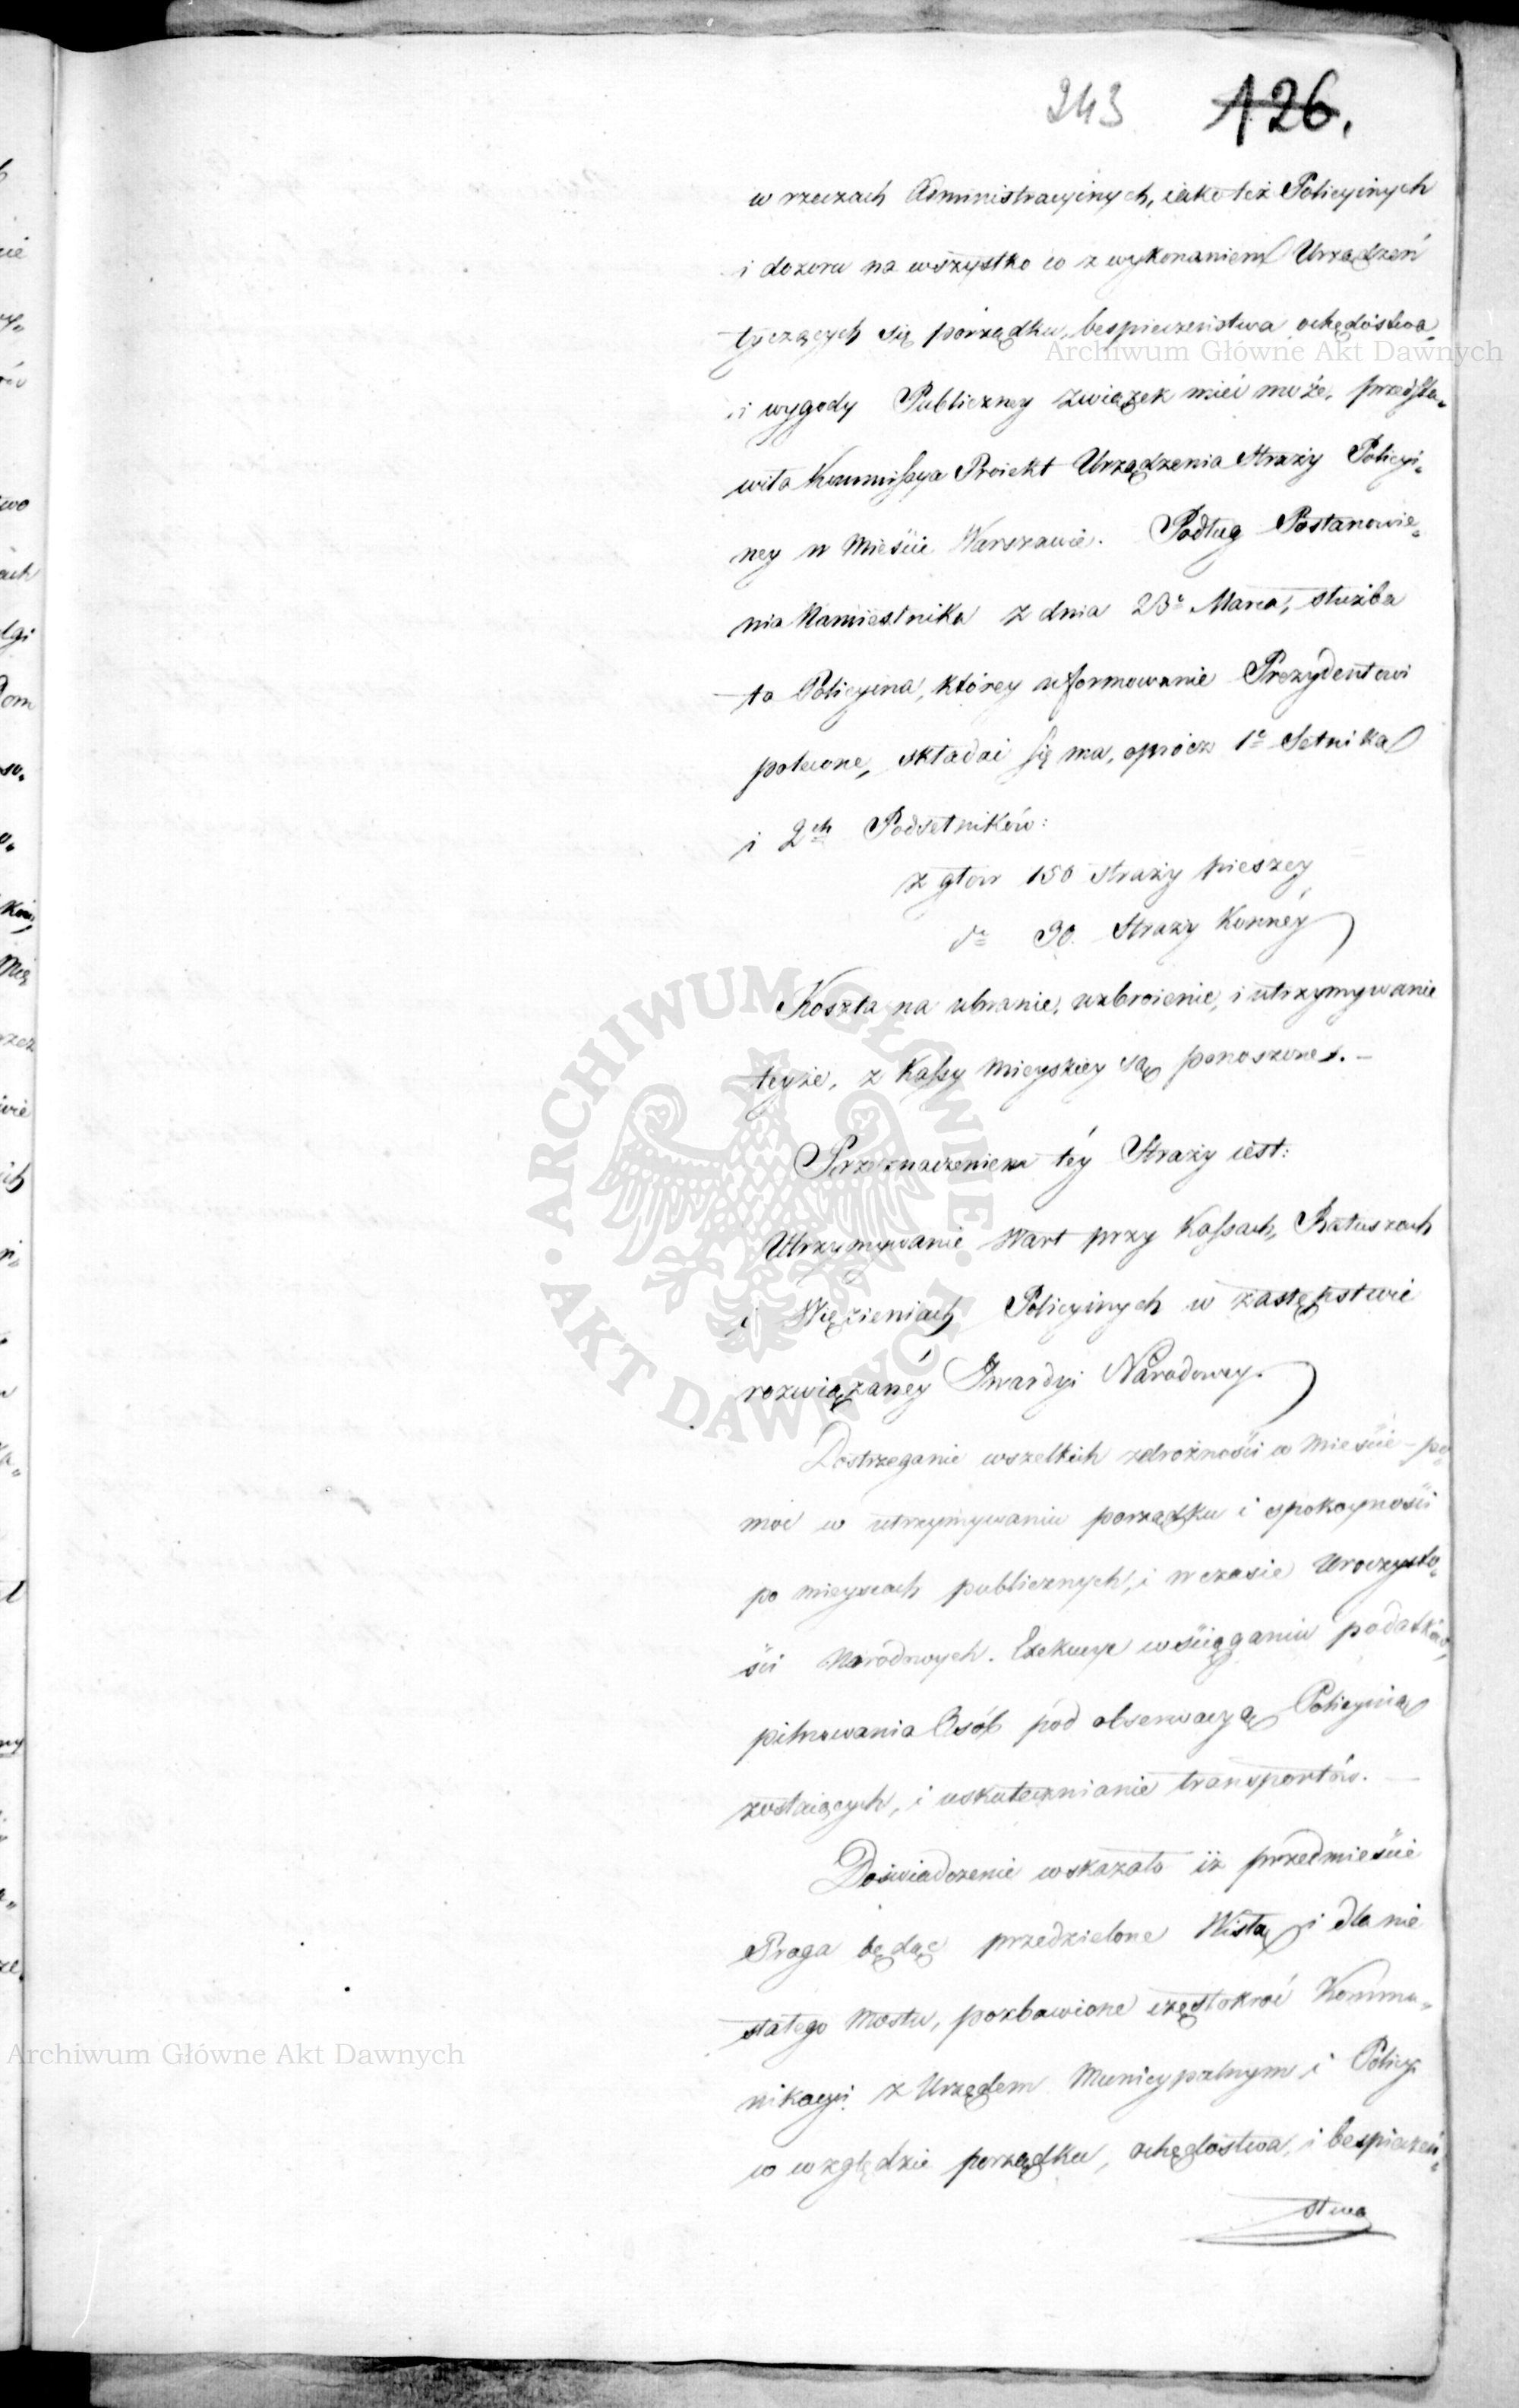 243 126.
w rzeczach Administracyinych, iako też Policyinych
i dozoru na wszystko co z wykonaniem Urządzeń
tyczących się porządku, bespieczeństwa, ochędóstwa
i wygody Publiczney związek mieć może, przedsta„
wiła Kommissya Proiekt Urządzenia Straży Policyi„
ney w Mieście Warszawie. Podług Postanowie„
nia Namiestnika z dnia 23º Marca, służba
ta Policyina, którey uformowanie Prezydentowi
polecone, składać się ma, oprócz 1º Setnika
i 2ch Podsetników:
z głow 150 straży pieszey
dº 30. Straży Konnéy
Koszta na ubranie, uzbroienie, i utrzymywanie
teyże, z Kassy Mieyskiey są ponoszone. –
Przeznaczeniem téy Straży iest:
Utrzymywanie Wart przy Kassach, Ratuszach
i Więzieniach Policyinych w zastępstwie
rozwiązanéy Gwardyi Narodowey.
Dostrzeganie wszelkich zdrożności w Mieście – po„
moc w utrzymywaniu porządku i spokoyności
po mieyscach publicznych, i w czasie Uroczysto„
ści Narodowych. Exekucye w ściąganiu podatków,
pilnowania Osób pod obserwacyą Policyiną
zostaiących, i uskutecznianie transportów. –
Doświadczenie wskazało iż przedmieście
Praga będąc przedzielone Wisłą i dla nie
stałego Mostu, pozbawione częstokroć Kommu„
nikacyi z Urzędem Municypalnym i Policyi
w względzie porządku, ochędóstwa, i bespieczeń„
stwa
Archiwum Główne Akt Dawnych
Archiwum Główne Akt Dawnych
ARCHIWUM GŁÓWNE · AKT DAWNYCH ·